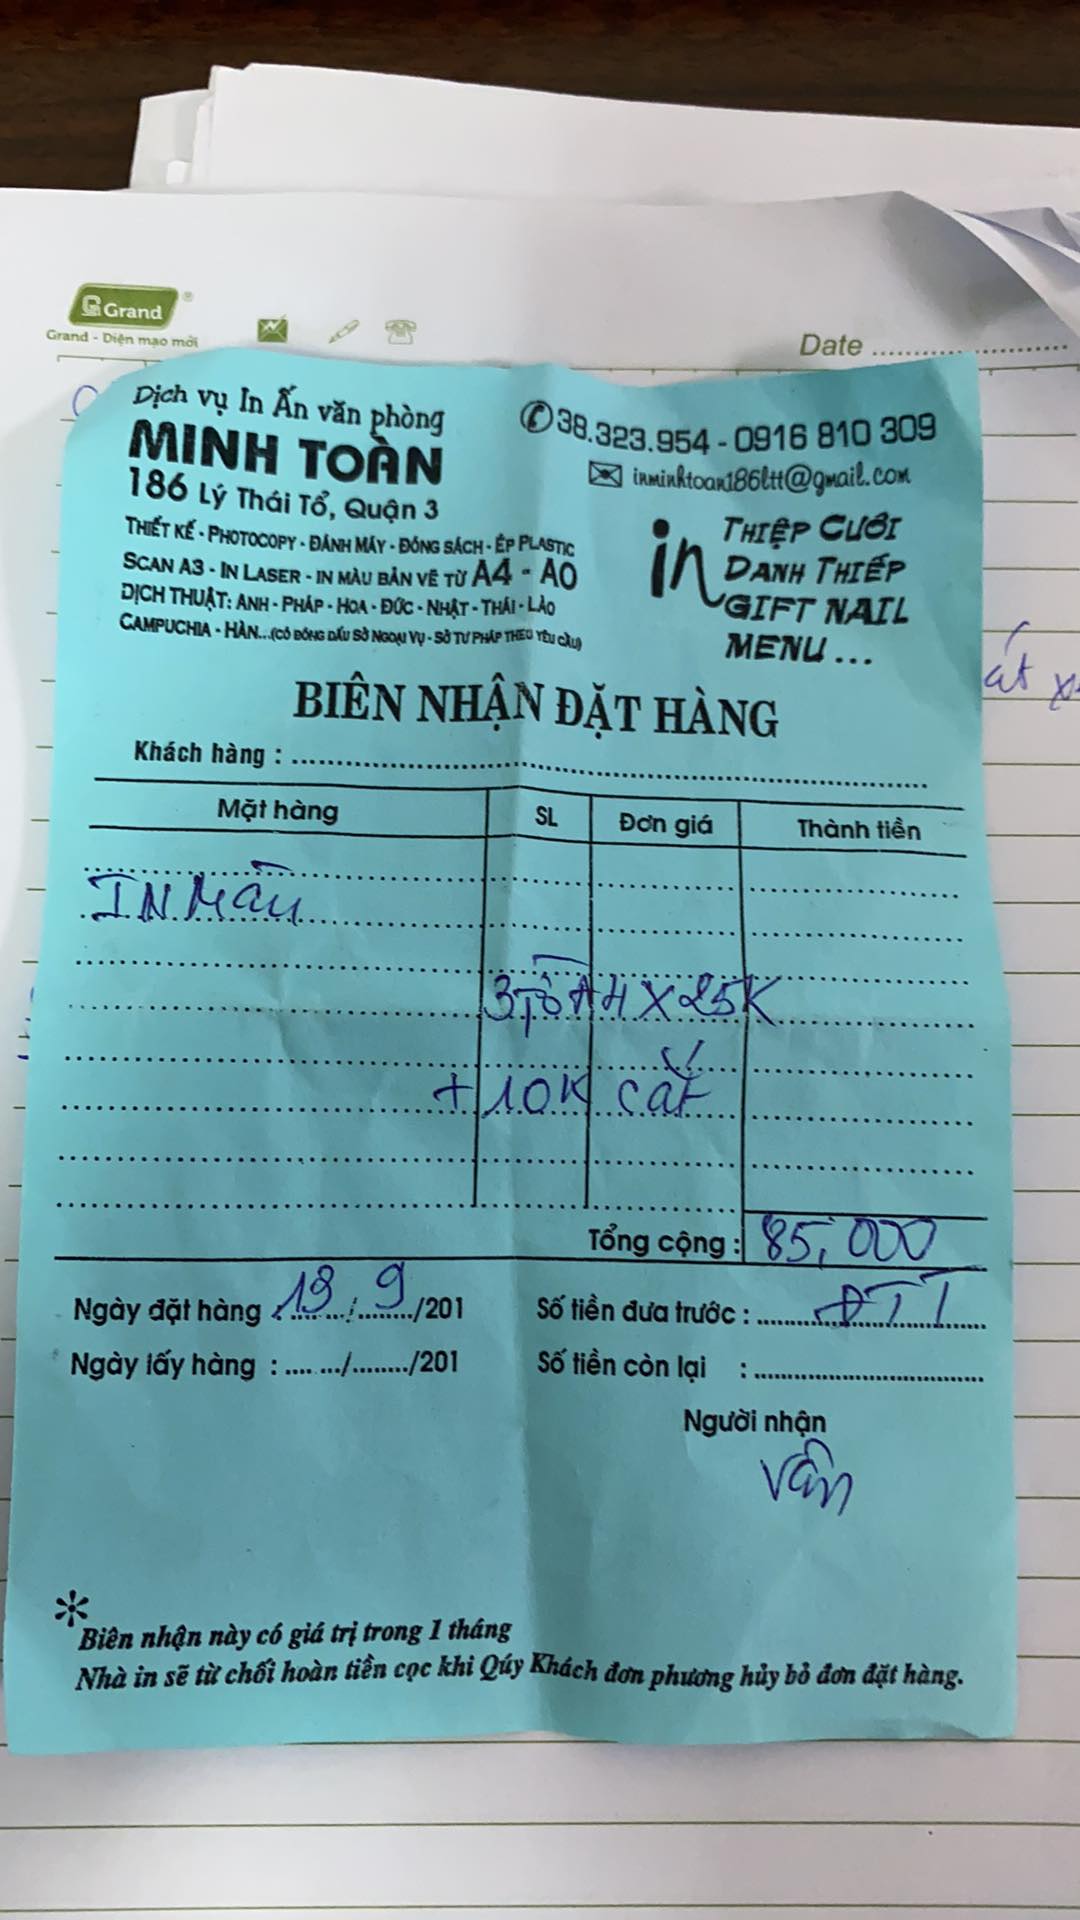 Grand ®
Grand - Diện mạo mới
Date
Dịch vụ In Ấn văn phòng
MINH TOÀN
186 Lý Thái Tổ, Quận 3
THIẾT KẾ - PHOTOCOPY - ĐÁNH MÁY - ĐÓNG SÁCH - ÉP PLASTIC
SCAN A3 - IN LASER - IN MÀU BẢN VẼ TỪ A4 - A0
DỊCH THUẬT: ANH - PHÁP - HOA - ĐỨC - NHẬT - THÁI - LÀO
CAMPUCHIA - HÀN...(CÓ ĐÓNG DẤU SỞ NGOẠI VỤ - SỞ TƯ PHÁP THEO YÊU CẦU)
✆38.323.954 - 0916 810 309
✉ inminhtoan186ltt@gmail.com
in THIỆP CƯỚI
DANH THIẾP
GIFT NAIL
MENU ...
BIÊN NHẬN ĐẶT HÀNG
Khách hàng :
Mặt hàng SL Đơn giá Thành tiền
IN Màu
3 tờ A4 X 25K
+ 10K cắt
Tổng cộng : 85,000
Ngày đặt hàng : 19 / 9 /201 Số tiền đưa trước : ĐTT
Ngày lấy hàng : ....../......../201 Số tiền còn lại :
Người nhận
Vân
* Biên nhận này có giá trị trong 1 tháng
Nhà in sẽ từ chối hoàn tiền cọc khi Qúy Khách đơn phương hủy bỏ đơn đặt hàng.